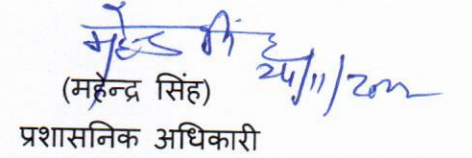 महेन्द्र सिंह
24/11/2022
(महेन्द्र सिंह)
प्रशासनिक अधिकारी